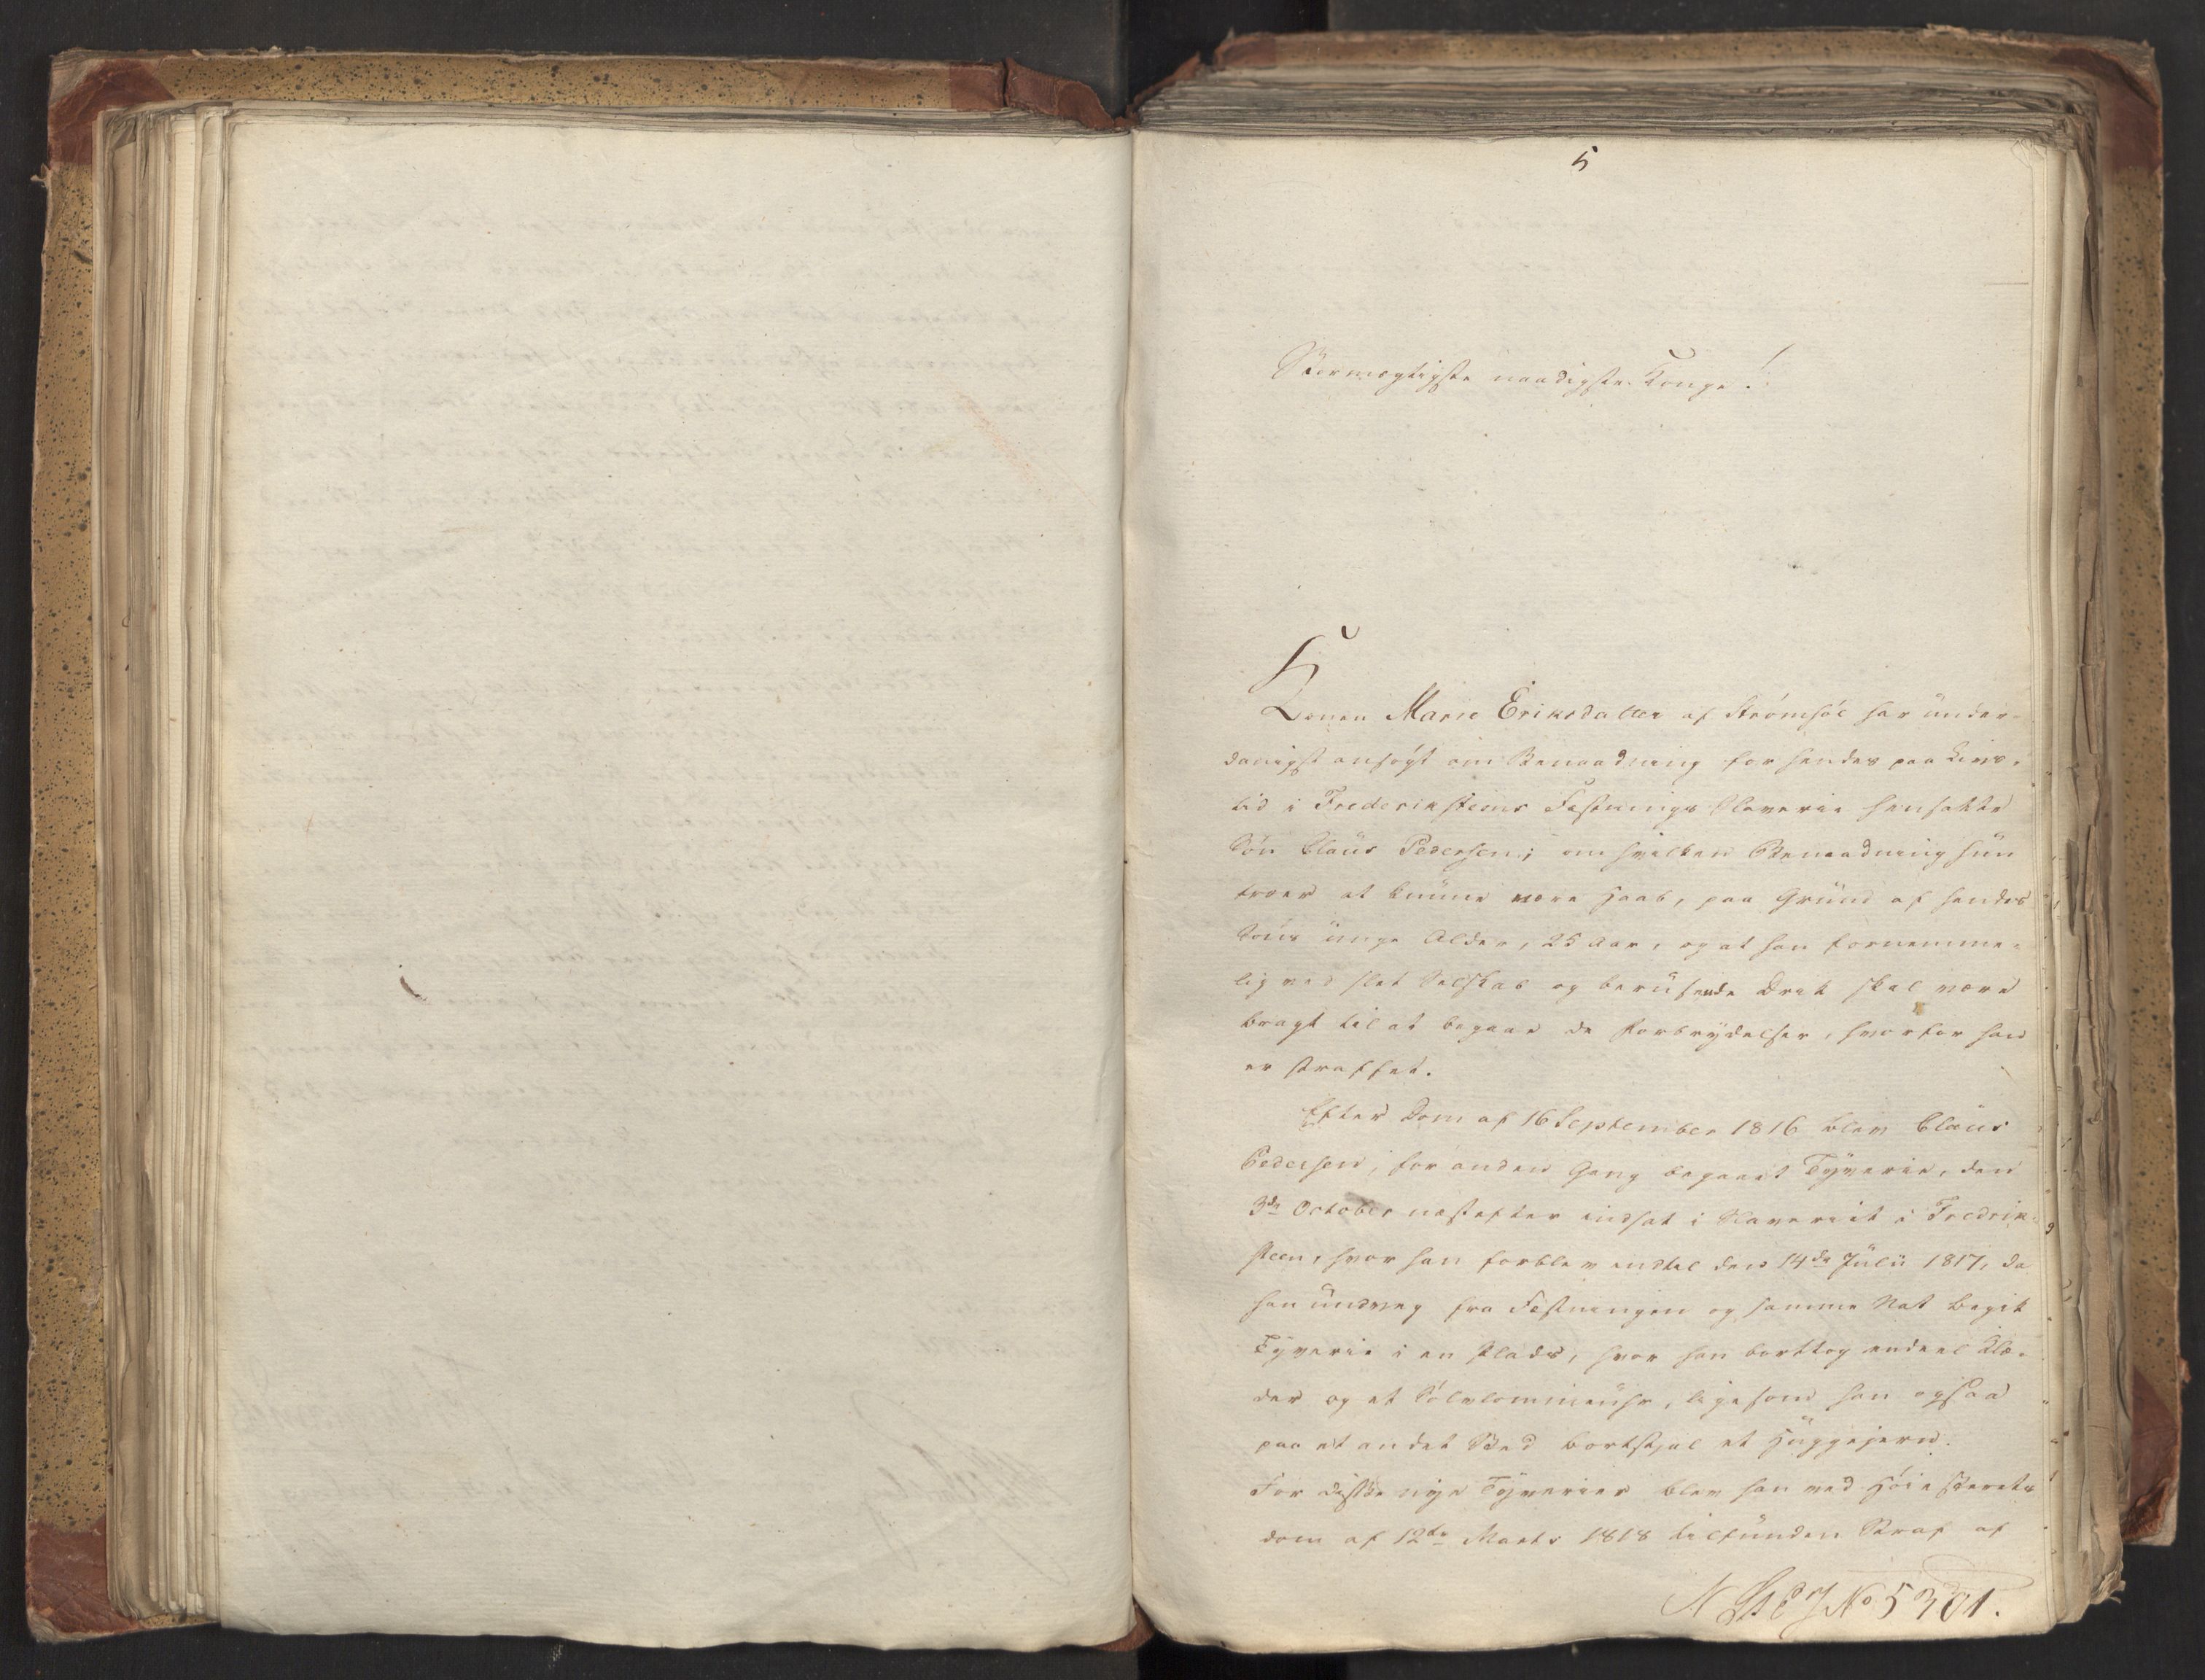 5
Stormægtigste naadigste Konge!
Konen Marie Eriksdatter af Strömsöe har under-
danigst ansögt om Benaadning for hendes paa Livs-
tid i Frederiksteens Fæstnings Slaverie hensatte
Sön Claus Pedersen; om hvilken Benaadning hun
troer at kunne være Haab, paa Grund af hendes
Söns unge Alder, 25 Aar, og at han fornemme-
lig ved slet Selskab og berusende Drik skal være
bragt til at begaae de Forbrydelser, hvorfor han
er straffet.
Efter Dom af 16 September 1816 blev Claus
Pedersen, for anden Gang begaaet Tyverie, den
3de October næstefter indsat i Slaveriet i Fredrik-
steen, hvor han forblev indtil den 14de Julii 1817, da
han undveg fra Fæstningen og samme Nat begik
Tyverie i en Plads, hvor han borttog endeel Klæ-
der og et Sölvlommeuhr, ligesom han ogsaa
paa et andet Sted bortstjal et Huggejern.
For disse nye Tyverier blev han ved Höiesterets
dom af 12te Marts 1818 tilfunden Straf af
No 5301.